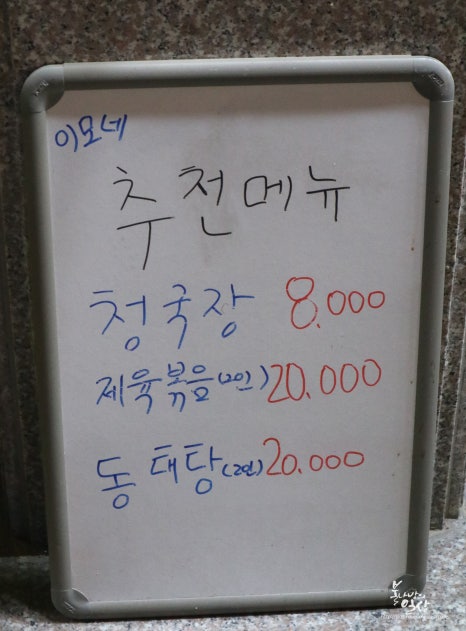 이모네
추천메뉴
청국장 8.000
제육볶음(2인) 20.000
동태탕(2인) 20.000